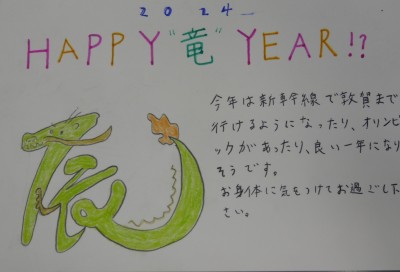 2024
HAPPY "竜" YEAR!?
今年は新幹線で敦賀まで
行けるようになったり、オリンピ
ックがあったり、良い一年になり
そうです。
お身体に気をつけてお過ごしくだ
さい。
辰